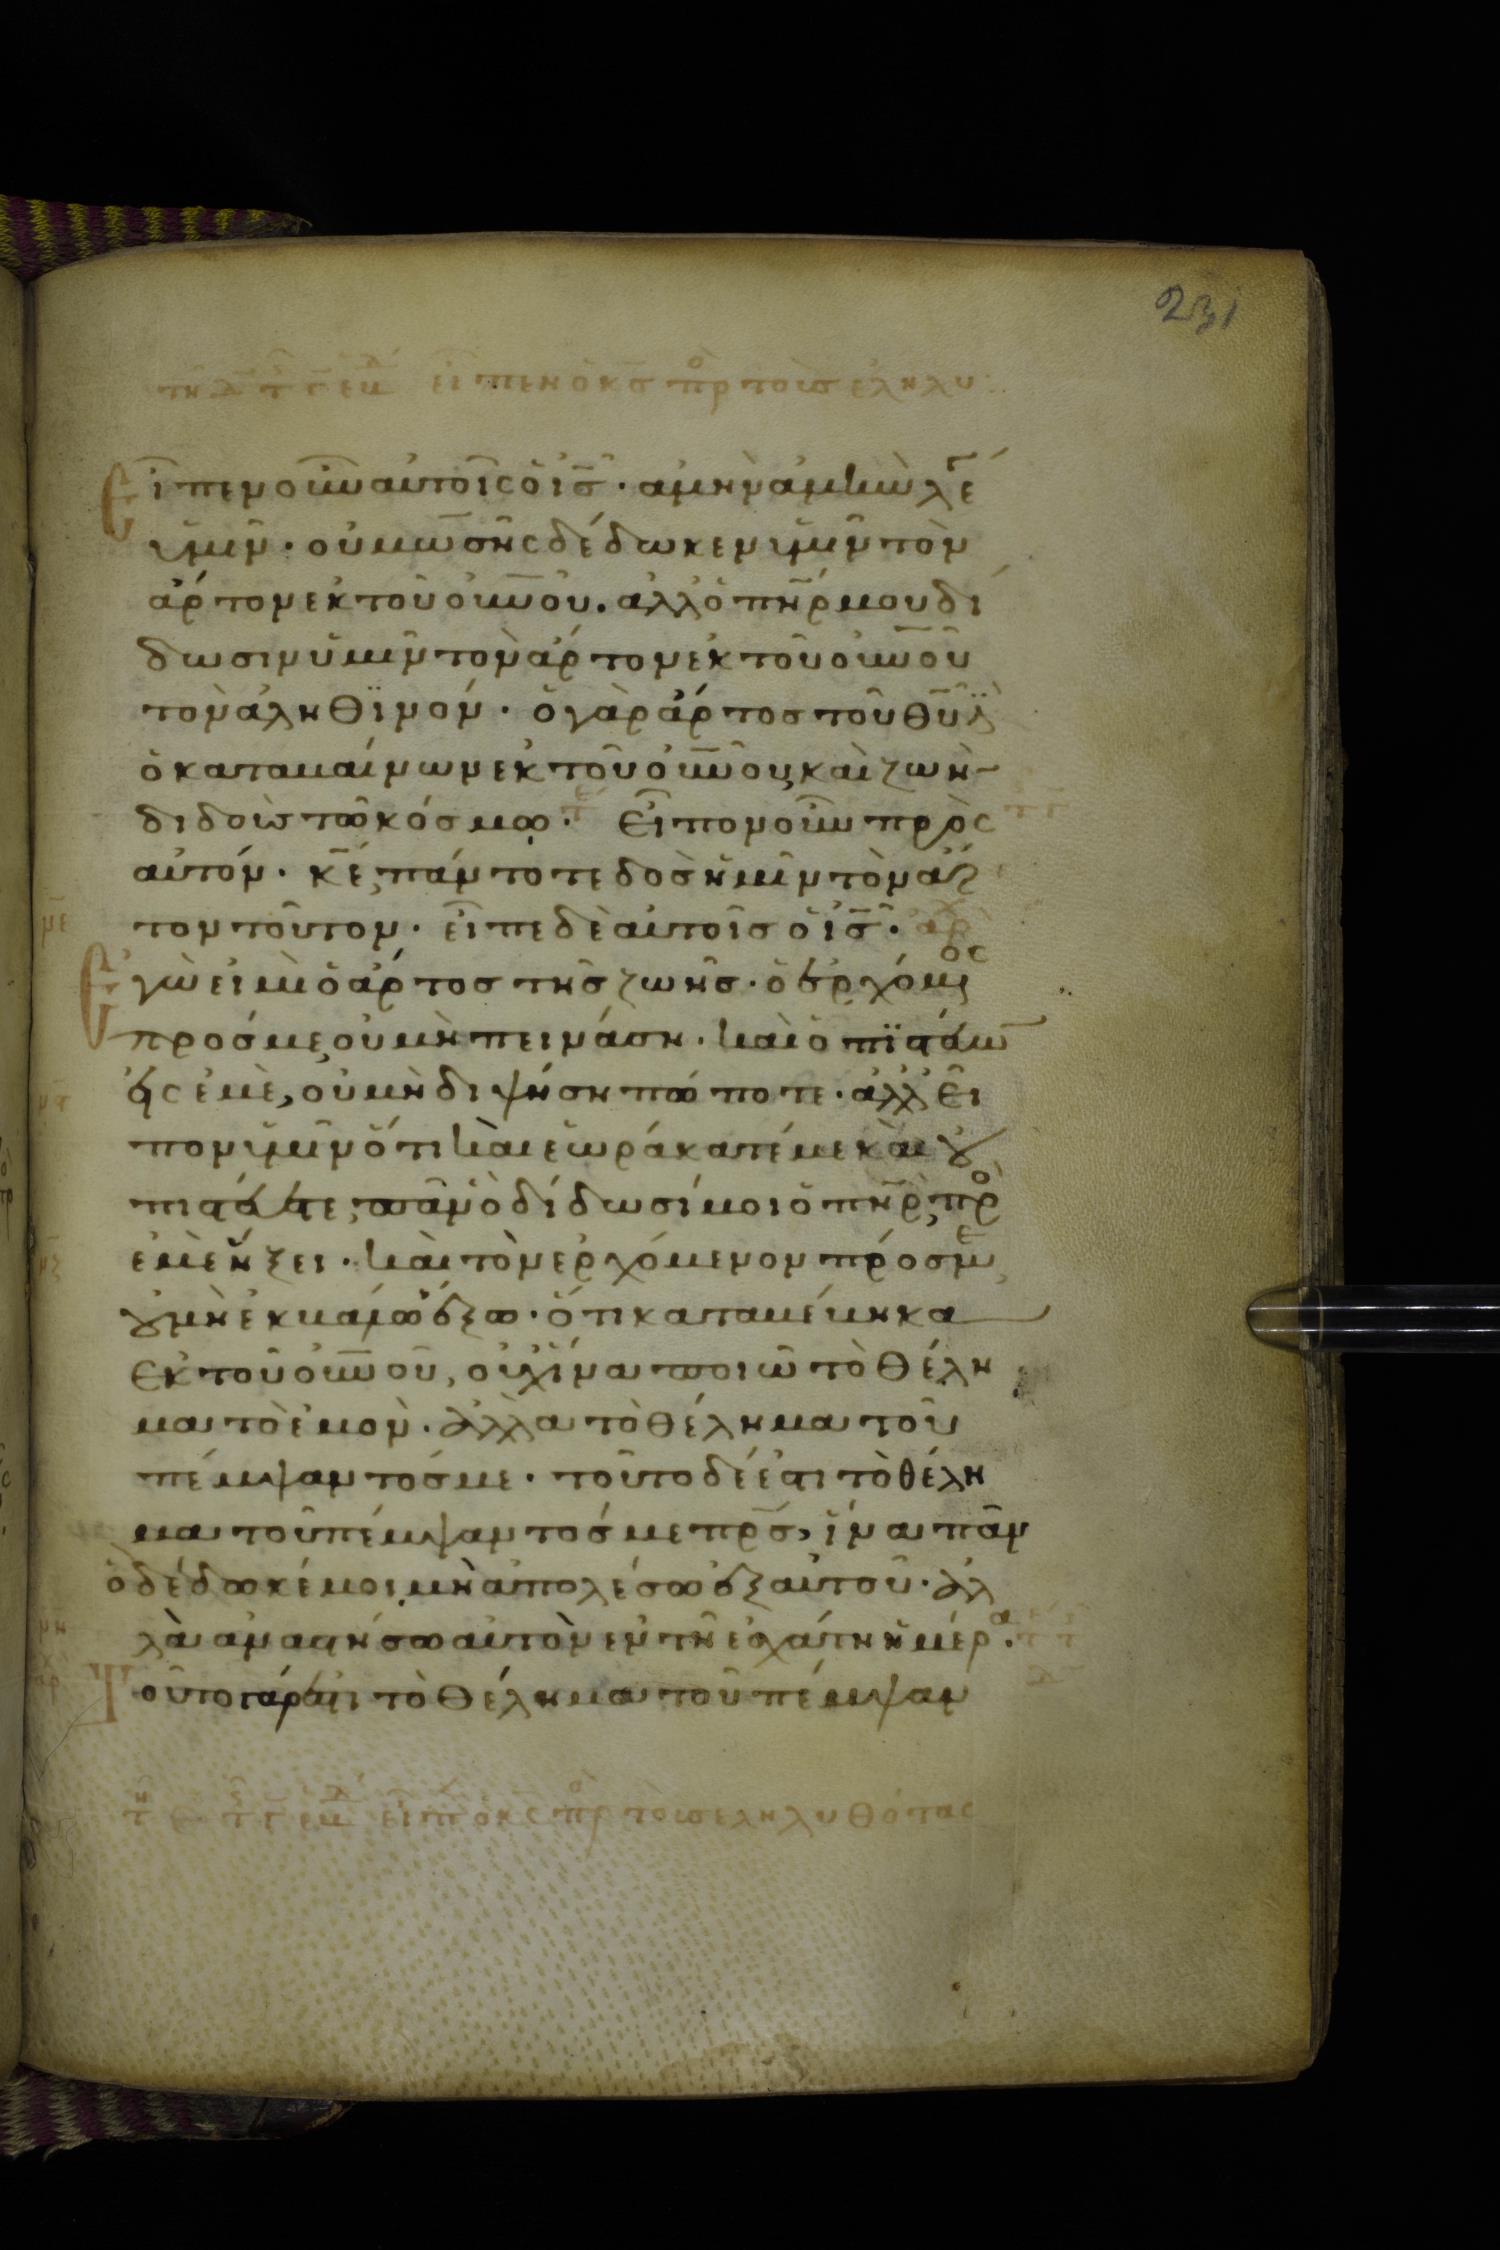 231
εἶπεν ὁ κς πρ τοὺσ ἐληλυ
Εἶπεν οὖν αὐτοῖς ὁ ισ· ἀμὴν ἀμὴν λέ
ὑμῖν· οὐ μωσῆς δέδωκεν ὑμῖν τὸν
ἄρτον εκ τοῦ οὐνου. ἀλλ ὁ πηρ μου δί
δωσιν ὑμῖν τὸν ἄρτον εκ τοῦ οὐνοῦ
τὸν ἀληθϊνόν· ὁ γὰρ ἄρτοσ τοῦ θυ ἐς
ὁ καταβαίνων εκ τοῦ οὐνοῦ, καὶ ζωὴν
διδοὺσ τῶ κόσμω· Εἶπον οὖν πρὸς
αὐτόν· κε, πάντοτε δοσ ἡμῖν τὸν ἄρ
τον τοῦτον· εἶπε δὲ αὐτοῖσ ὁ ισ·
με
Ἐγώ εἰμι ὁ ἄρτοσ τῆσ ζωῆσ· ὁ ἐρχόμενος
πρόσ με, οὐ μὴ πεινάση· καὶ ὁ πϊστεύων
εἰς ἐμὲ, οὐ μὴ διψήση πώποτε· ἀλλ εἶ
πον ὑμῖν ὅτι καὶ ἑωράκατέ με καὶ οὐ
πιστεύετε, πᾶν ὃ δίδωσί μοι ὁ πηρ, πρ
ἐμὲ ἥξει· καὶ τὸν ἐρχόμενον πρόσ με
οὐ μὴ ἐκβάλω ἔξω· ὅτι καταβέβηκα
εκ τοῦ οὐνοῦ, οὐχ ἵνα ποιῶ τὸ θέλη
μα τὸ ἐμὸν· ἀλλα τὸ θέλημα τοῦ
πέμψαντόσ με· τοῦτο δέ ἐστι τὸ θέλη
μα τοῦ πέμψαντοσ με πρσ, ἵνα πᾶν
ὃ δέδωκέ μοι μὴ ἀπολέσω ἐξ αὐτοῦ· ἀλ
λὰ αναστήσω αὐτὸν εν τῆ εσχάτη ἡμέρα·
Τοῦτο γάρ ἐστι τὸ θέλημα τοῦ πέμψαν
εἶπ ὁ κς πρ τοὺσ εληλυθότας